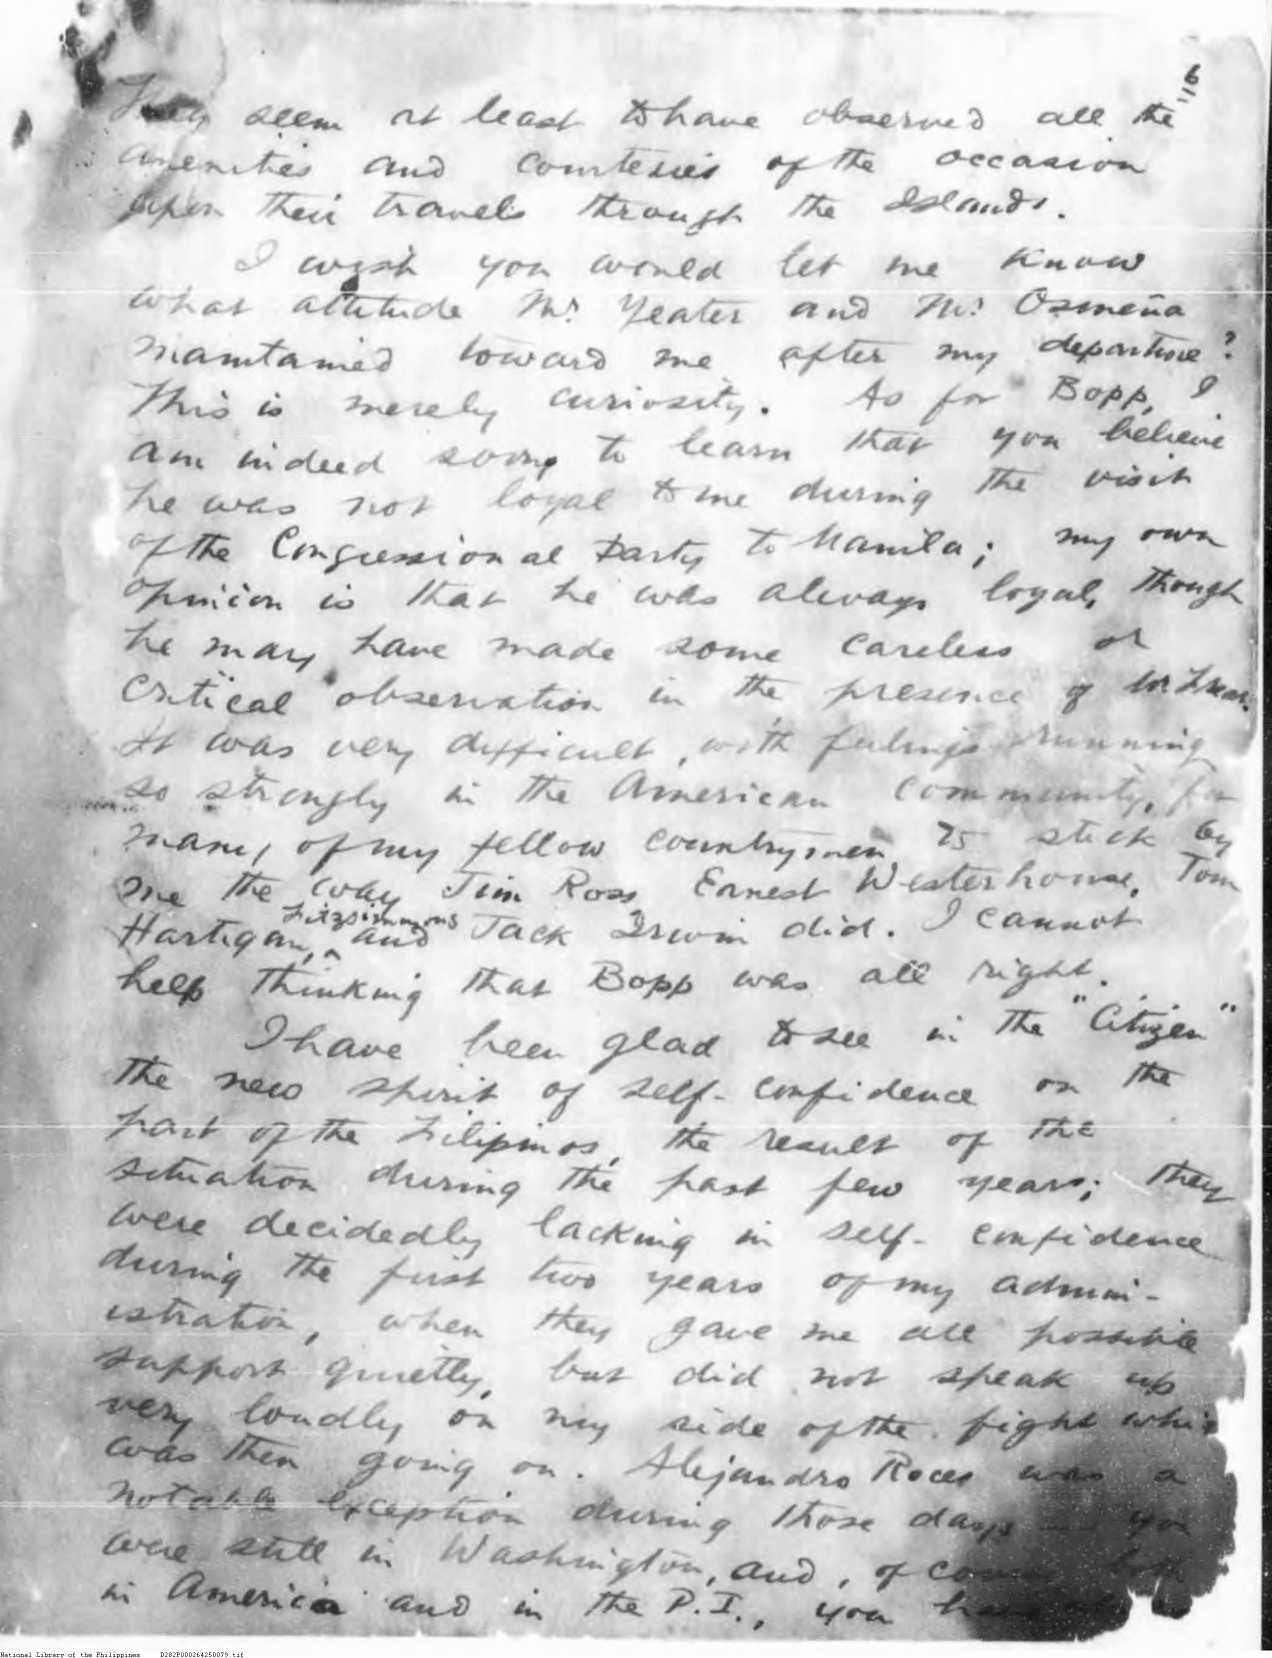 16
They seem at least to have observed all the
amenities and courtesies of the occasion
upon their travels through the Islands.
I wish you would let me know
what attitude Mr. Yeater and Mr. Osmeña
maintained toward me after my departure?
This is merely curiosity. As for Bopp, I
am indeed sorry to learn that you believe
he was not loyal to me during the visit
of the Congressional Party to Manila; my own
opinion is that he was always loyal, though
he may have made some careless or
critical observation in the presence of
It was very difficult, with feelings running
so strongly in the American community, for
many of my fellow countrymen to stick by
me the way Jim Ross, Ernest Westerhouse, Tom
Hartigan, Fitzsimmons and Jack Irwin did. I cannot
help thinking that Bopp was all right.
I have been glad to see in the "Citizen"
the new spirit of self-confidence on the
part of the Filipinos, the result of the
situation during the past few years; they
were decidedly lacking in self-confidence
during the first two years of my admin-
istration, when they gave me all possible
support quietly, but did not speak up
very loudly on my side of the fight whi
was then going on. Alejandro Roces was a
notable exception during those days you
were still in Washington, and, of both
in America and in the P.I., you
National Library of the Philippines D282P000264250079.tif